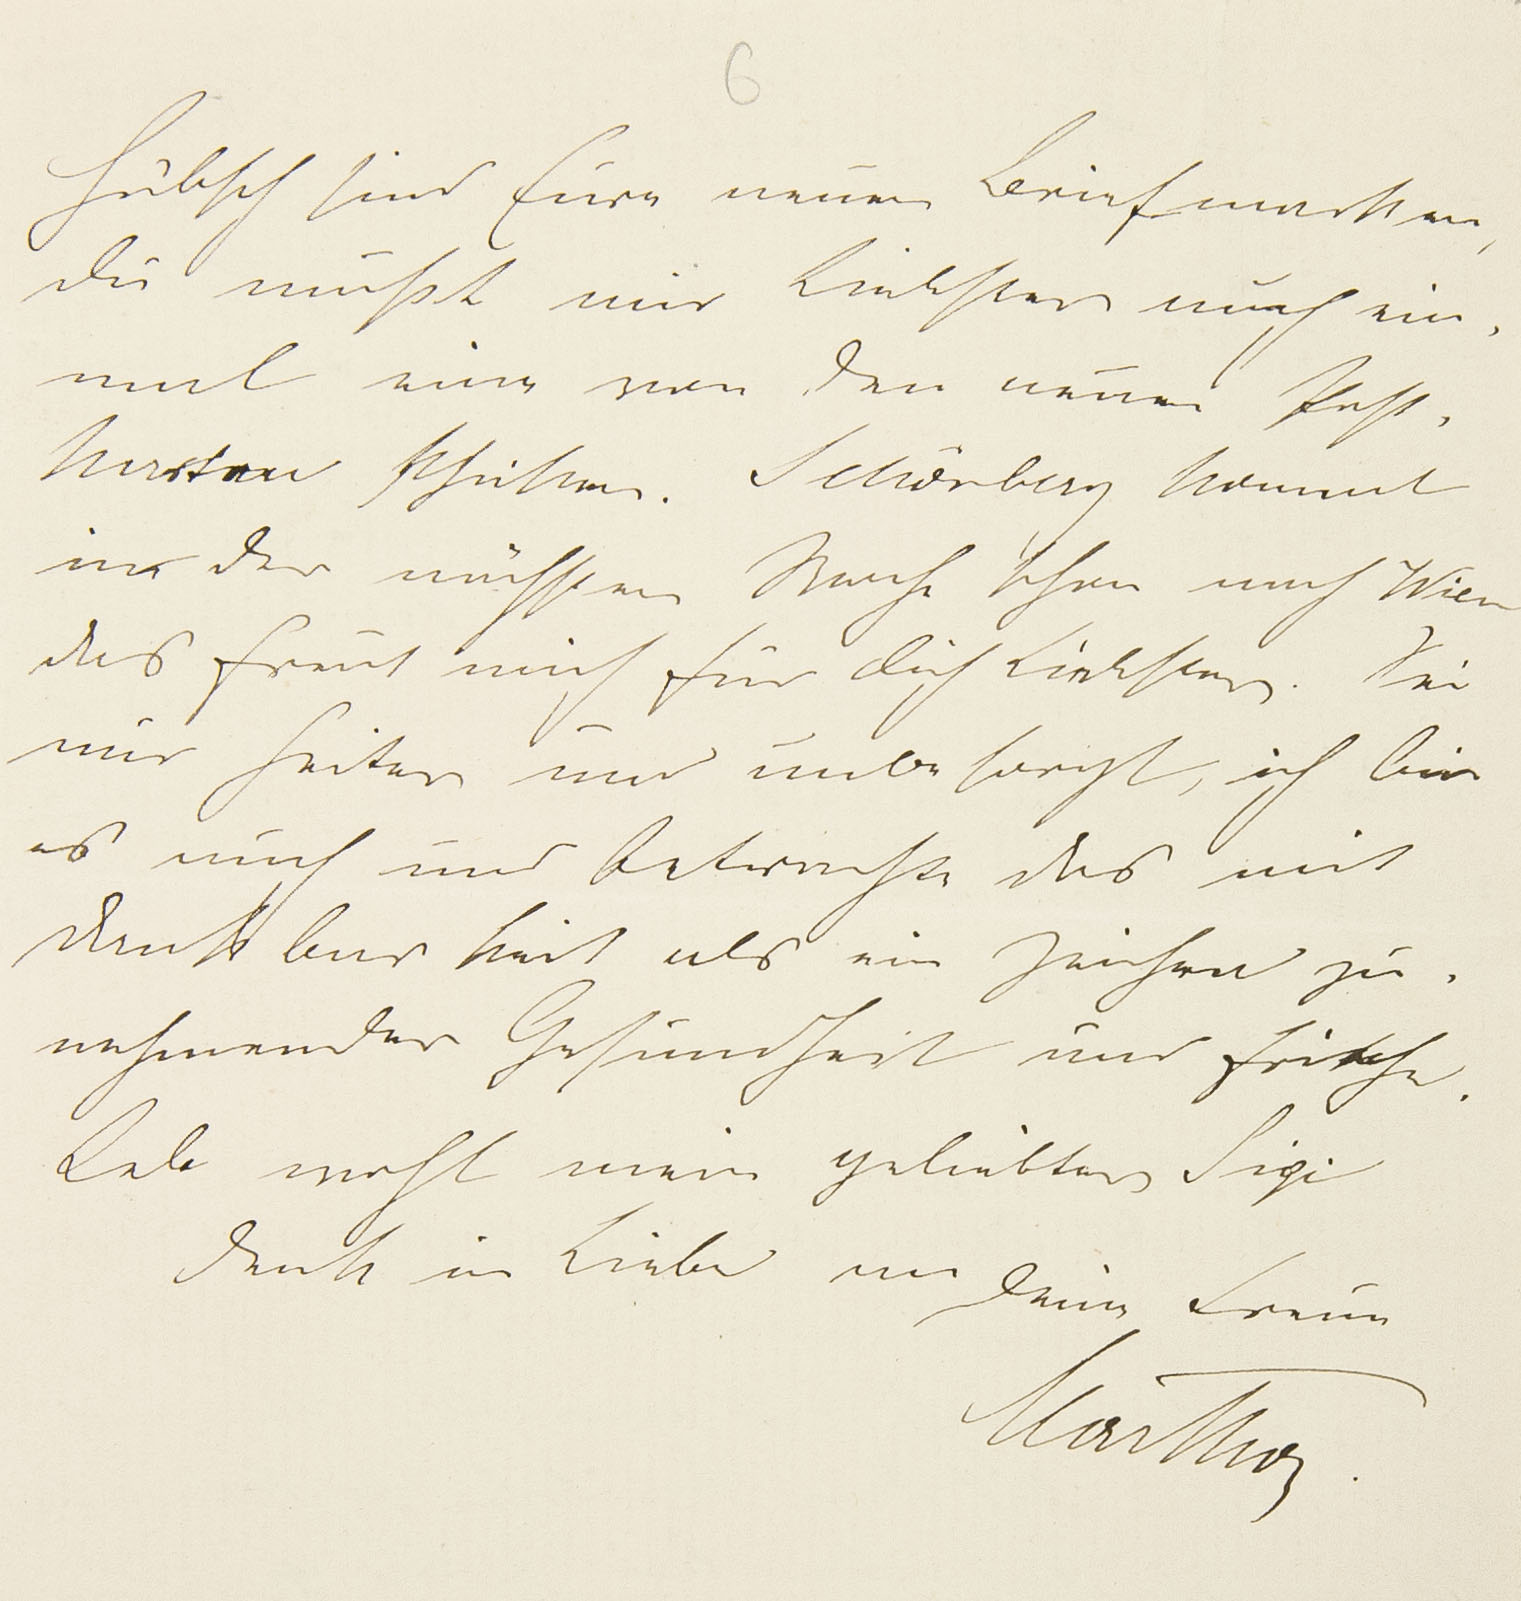 6
Hübsch sind Eure neuen Briefmarken,
du mußt mir Liebster auch ein-
mal eine von den neuen Post-
karten schicken. Schönberg kommt
in der nächsten Woche schon nach Wien
das freut mich für dich Liebster. Sei
nur heiter und unbesorgt, ich bin
es auch und betrachte das mit
Dankbarkeit als ein Zeichen zu-
nehmender Gesundheit und Frische.
Leb wohl mein geliebter Sigi
denk in Liebe an deine treue
Martha.